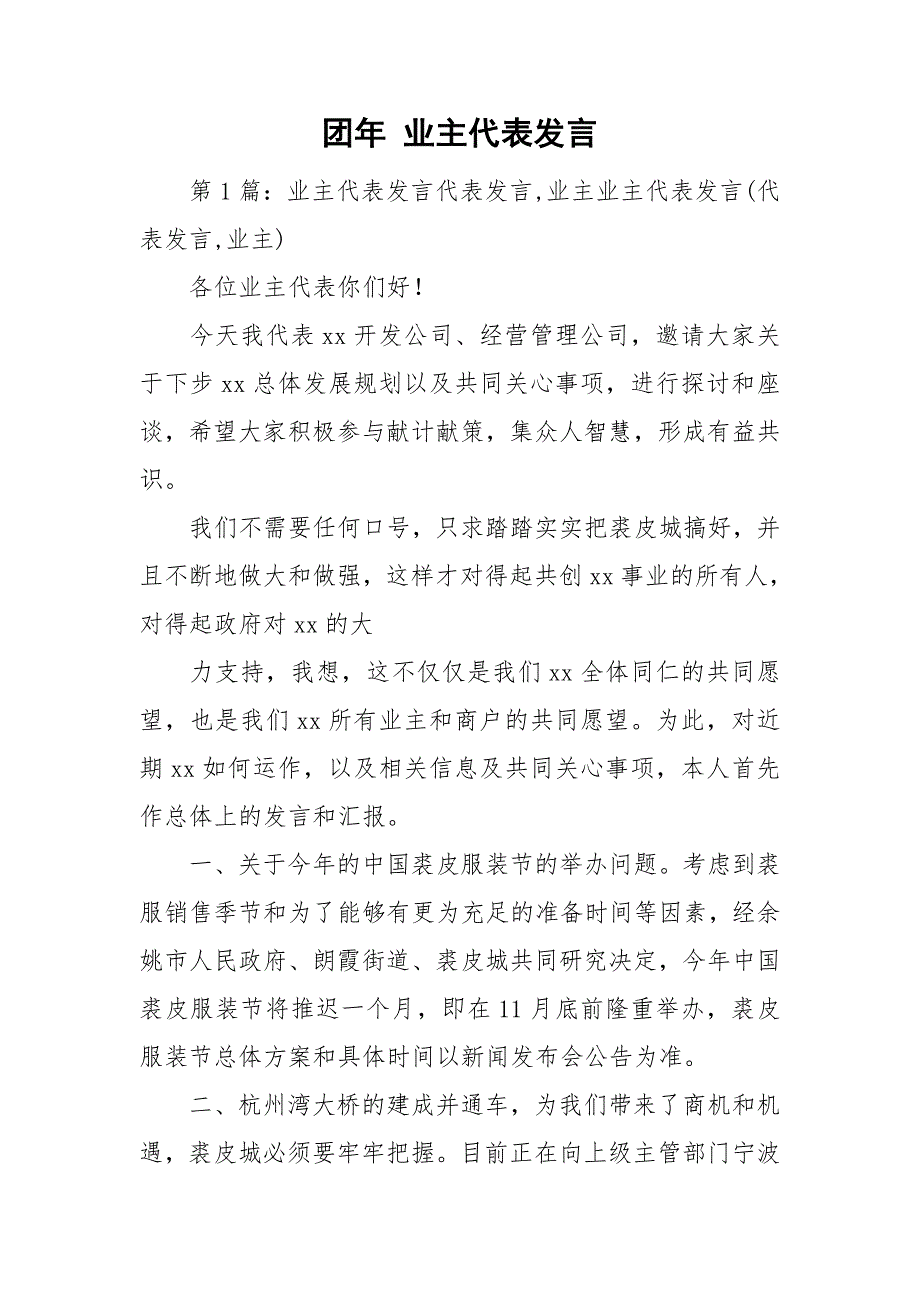 团年 业主代表发言
第1篇：业主代表发言代表发言,业主业主代表发言(代
表发言,业主)
各位业主代表你们好！
今天我代表xx开发公司、经营管理公司，邀请大家关
于下步xx总体发展规划以及共同关心事项，进行探讨和座
谈，希望大家积极参与献计献策，集众人智慧，形成有益共
识。
我们不需要任何口号，只求踏踏实实把裘皮城搞好，并
且不断地做大和做强，这样才对得起共创xx事业的所有人，
对得起政府对xx的大
力支持，我想，这不仅仅是我们xx全体同仁的共同愿
望，也是我们xx所有业主和商户的共同愿望。为此，对近
期xx如何运作，以及相关信息及共同关心事项，本人首先
作总体上的发言和汇报。
一、关于今年的中国裘皮服装节的举办问题。考虑到裘
服销售季节和为了能够有更为充足的准备时间等因素，经余
姚市人民政府、朗霞街道、裘皮城共同研究决定，今年中国
裘皮服装节将推迟一个月，即在11月底前隆重举办，裘皮
服装节总体方案和具体时间以新闻发布会公告为准。
二、杭州湾大桥的建成并通车，为我们带来了商机和机
遇，裘皮城必须要牢牢把握。目前正在向上级主管部门宁波